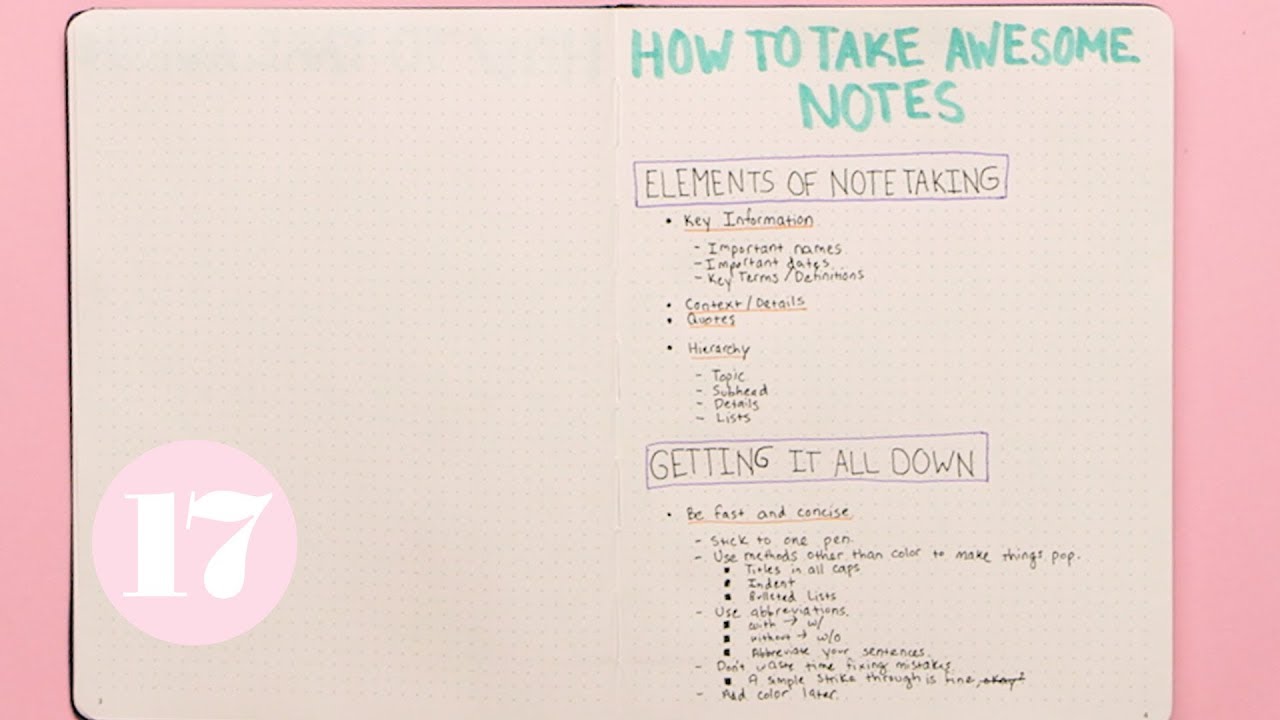 HOW TO TAKE AWESOME
NOTES
ELEMENTS OF NOTE TAKING
• Key Information
- Important names
- Important dates
- Key Terms / Definitions
• Context / Details
• Quotes
• Hierarchy
- Topic
- Subhead
- Details
- Lists
GETTING IT ALL DOWN
• Be fast and concise
- Stick to one pen.
- Use methods other than color to make things pop.
▪ Titles in all caps
▪ Indent
▪ Bulleted Lists
- Use abbreviations.
▪ with → w/
▪ without → w/o
▪ Abbreviate your sentences.
- Don't waste time fixing mistakes.
▪ A simple strike through is fine, okay?
- Add color later.
17
3
4